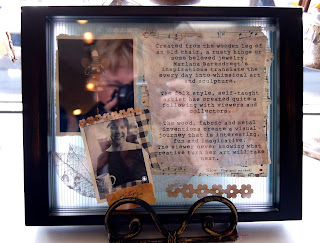 Created from the wooden leg of
an old chair, a rusty hinge or
some beloved jewelry,
Marlana Barendregt's
inspirations translate the
every day into whimsical art
and sculpture.
The folk style, self-taught
artist has created quite a
following with viewers and
collectors.
The wood, fabric and metal
inventions create a visual
journey that is interesting,
fun and imaginative.
The viewer never knowing what
creative turn her art will take
next.